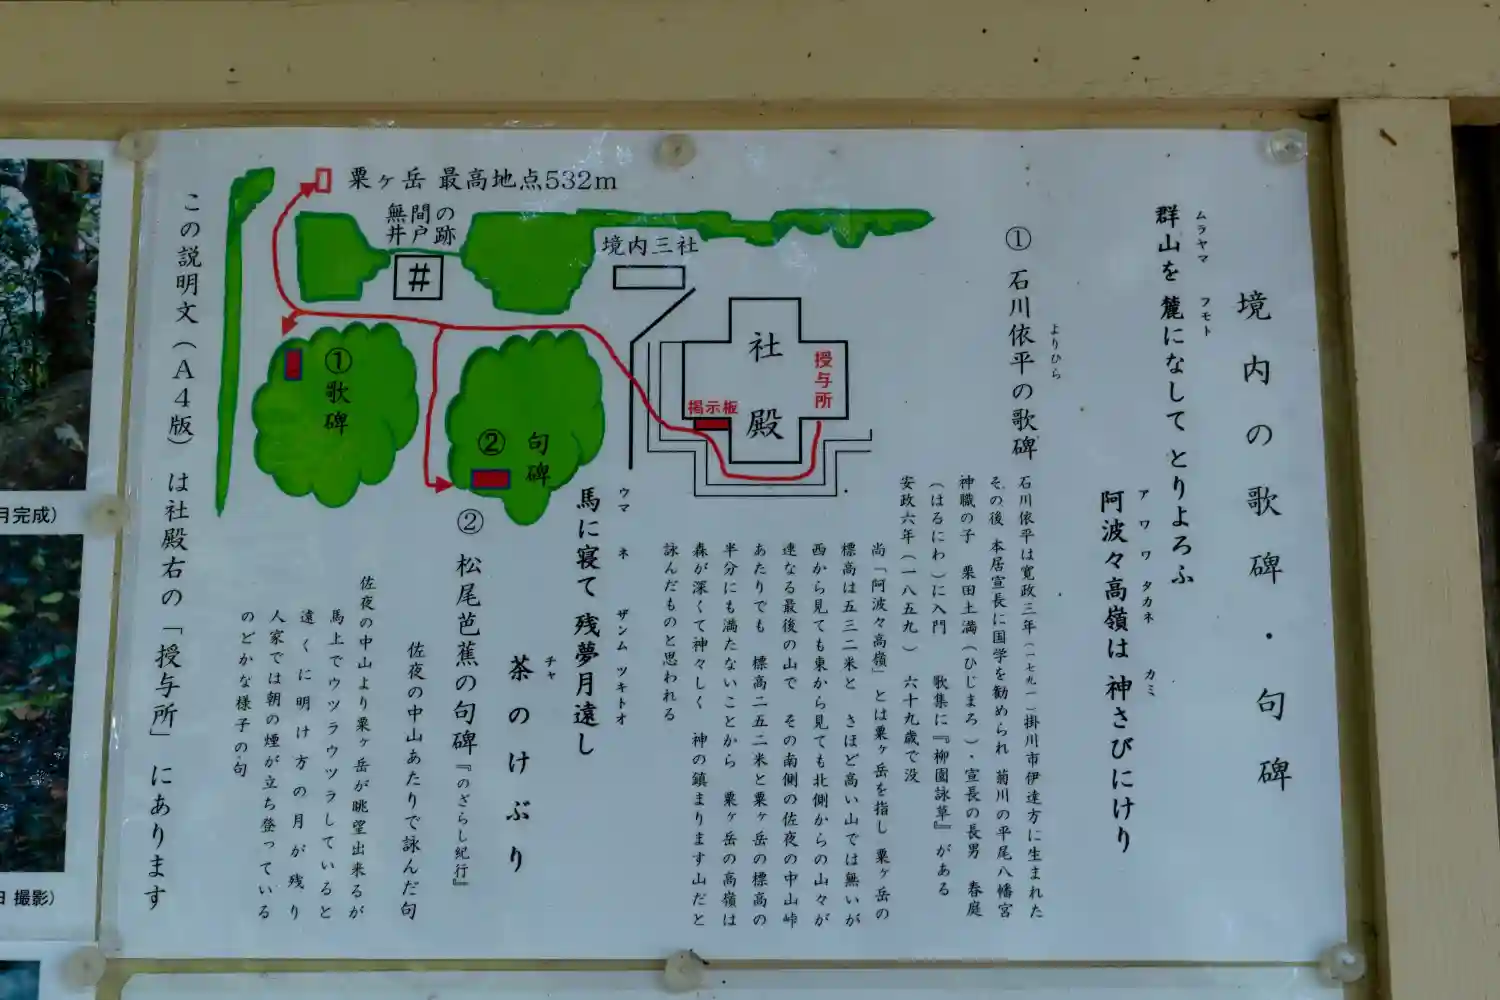 境内の歌碑・句碑
群山を 麓になして とりよろふ
ムラヤマ フモト
阿波々高嶺は 神さびにけり
アワワ タカネ カミ
① 石川依平の歌碑
よりひら
石川依平は寛政三年(一七九一)掛川市伊達方に生まれた
その後 本居宣長に国学を勧められ 菊川の平尾八幡宮
神職の子 栗田土満(ひじまろ)・宣長の長男 春庭
(はるにわ)に入門 歌集に『柳園詠草』がある
安政六年(一八五九) 六十九歳で没
尚「阿波々高嶺」とは粟ヶ岳を指し 粟ヶ岳の
標高は五三二米と さほど高い山では無いが
西から見ても東から見ても北側からの山々が
連なる最後の山で その南側の佐夜の中山峠
あたりでも 標高二五二米と粟ヶ岳の標高の
半分にも満たないことから 粟ヶ岳の高嶺は
森が深くて神々しく 神の鎮まります山だと
詠んだものと思われる
馬に寝て 残夢月遠し
ウマ ネ ザンム ツキトオ
茶のけぶり
チャ
② 松尾芭蕉の句碑『のざらし紀行』
佐夜の中山あたりで詠んだ句
佐夜の中山より粟ヶ岳が眺望出来るが
馬上でウツラウツラしていると
遠くに明け方の月が残り
人家では朝の煙が立ち登っている
のどかな様子の句
この説明文(A4版)は社殿右の「授与所」にあります
粟ヶ岳 最高地点532m
無間の
井戸跡
井
境内三社
社殿
授与所
掲示板
①
歌碑
②
句碑
月完成)
日 撮影)